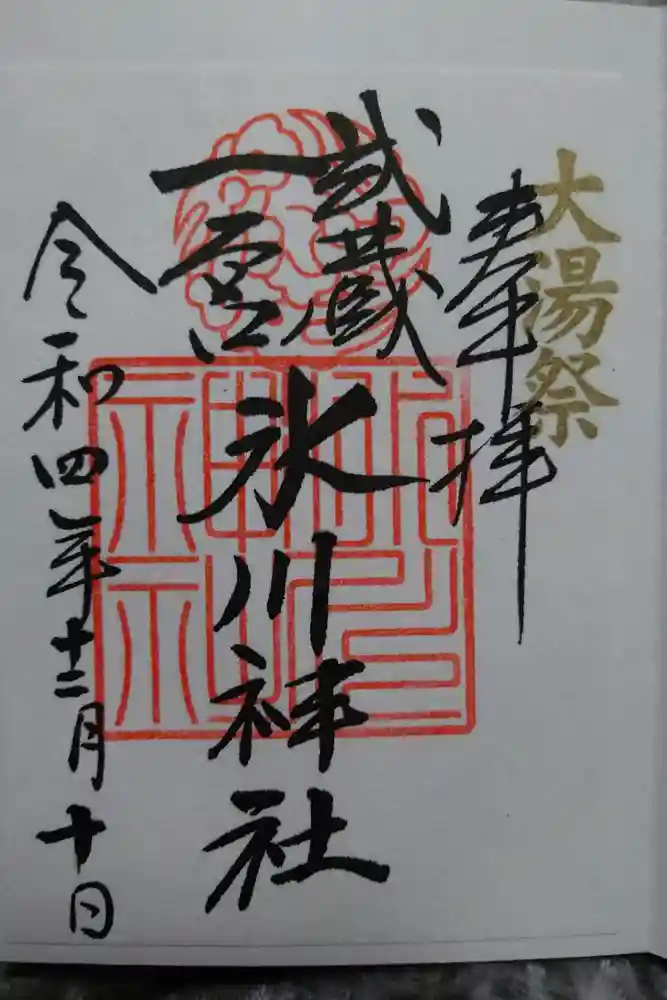 大湯祭
奉拝
武蔵
一宮
氷川神社
令和四年十二月十日